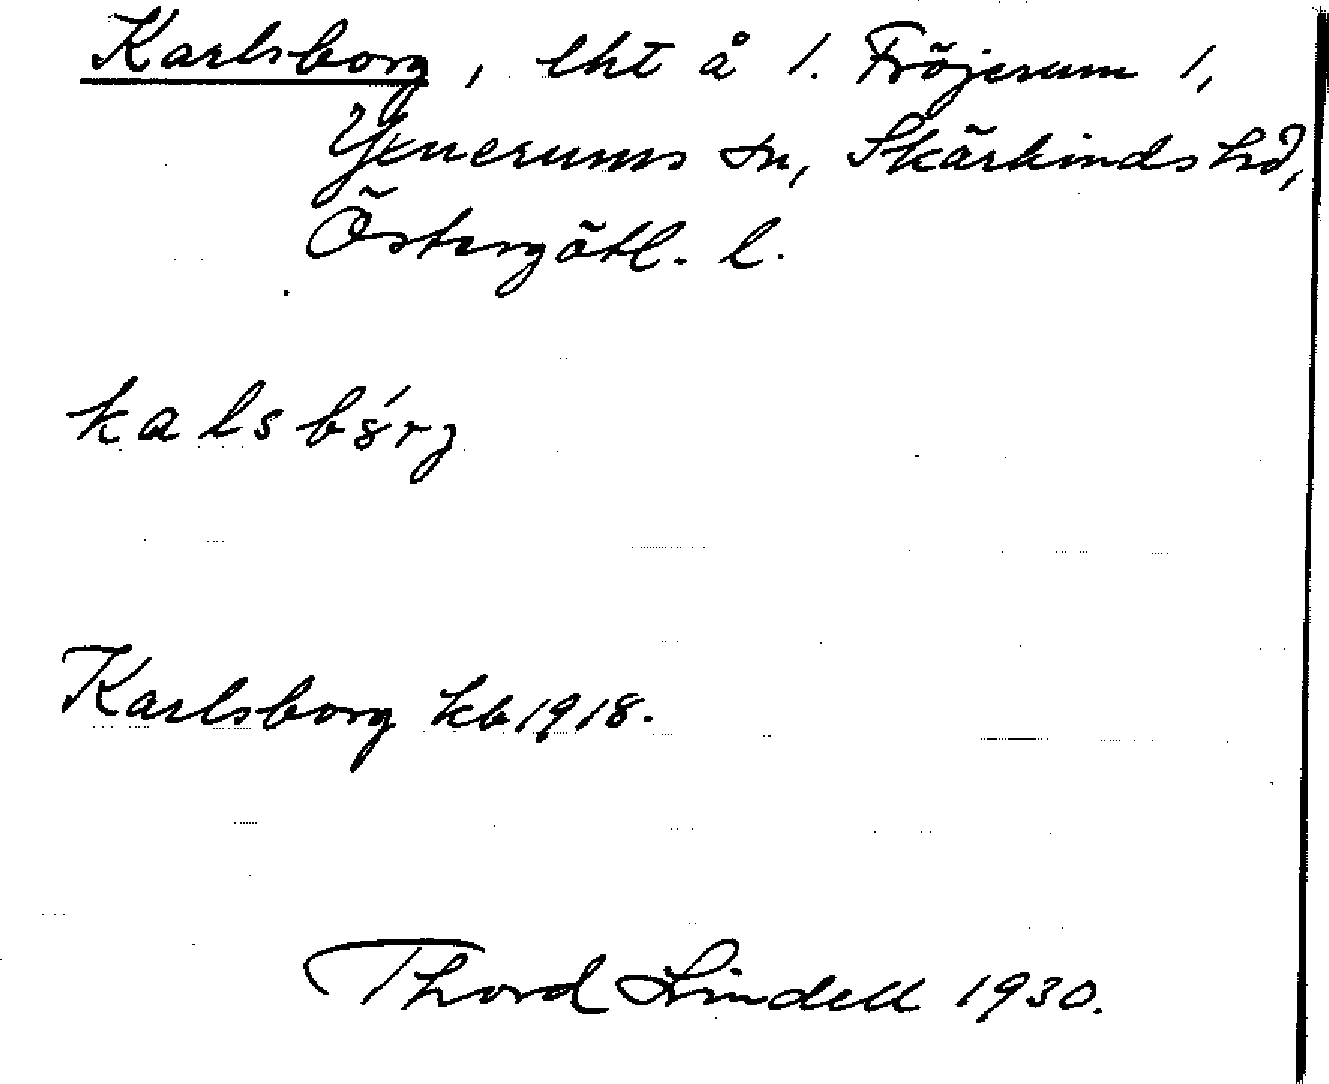 Karlsborg, lht å 1. Fröjerum 1,
Yxnerums sn, Skärkinds hd,
Östergötl. l.
Karlsborg kb 1918.
Thord Lindell 1930.